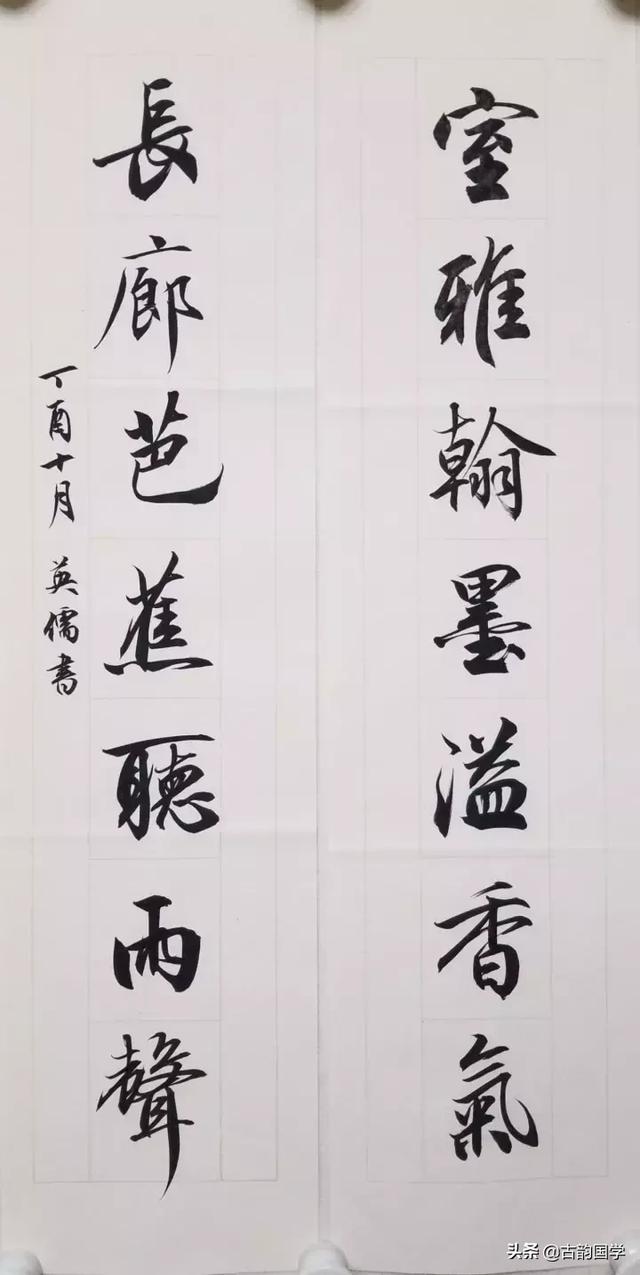 室雅翰墨溢香氣
長廊芭蕉聽雨聲
丁酉十月 英儒書
头条 @古韵国学